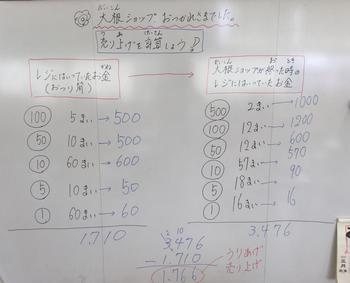 大根ショップおつかれさまでした。
う あ けいさん
売り上げを計算しよう!
レジにはいっていたお金
(おつり用)
100 5まい→500
50 10まい→500
10 60まい→600
5 10まい→50
1 60まい→60
1,710
だいこん お とき
大根ショップが終った時の
レジにはいっていたお金
500 2まい→1000
100 12まい→1200
50 12まい→600
10 57まい→570
5 18まい→90
1 16まい→16
3,476
2 10
3,476
-1,710
1,766
うりあげ
売り上げ